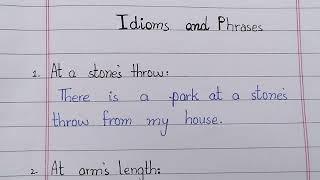 Idioms and Phrases
1. At a stone's throw:
There is a park at a stone's
throw from my house.
2. At arm's length: